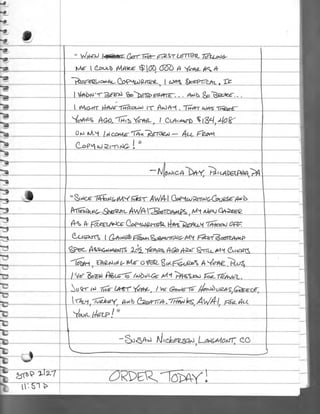 - WHEN I GOT THE FIRST LETTER TELLING
ME I COULD MAKE $100,000 A YEAR AS A
PROFESSIONAL COPYWRITER, I WAS SKEPTICAL. IF
I HADN'T BEEN SO DESPERATE... AND SO BROKE...
I MIGHT HAVE THROWN IT AWAY. THAT WAS THREE
YEARS AGO. THIS YEAR, I CLAIMED $134,408
ON MY INCOME TAX RETURN — ALL FROM
COPYWRITING!"
-MONICA DAY, PHILADELPHIA, PA
"SINCE TAKING MY FIRST AWAI COPYWRITING COURSE AND
ATTENDING SEVERAL AWAI BOOTCAMPS, MY NEW CAREER
AS A FREELANCE COPYWRITER HAS REALLY TAKEN OFF.
CLIENTS I GAINED FROM MY FIRST BOOTCAMP
SPEC ASSIGNMENTS 2½ YEARS AGO ARE STILL MY CLIENTS
TODAY, EARNING ME OVER SIX FIGURES A YEAR. PLUS
I'VE BEEN ABLE TO INDULGE MY PASSION FOR TRAVEL.
JUST IN THE LAST YEAR, I'VE GONE TO HONDURAS, GREECE,
ITALY, TURKEY, AND CROATIA. THANKS, AWAI, FOR ALL
YOUR HELP!"
-SUSAN NICKERSON, LONGMONT, CO
STOP 2/27
11:57 P
ORDER TODAY!